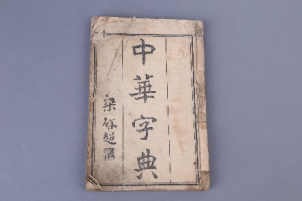 中華字典
梁啟超題